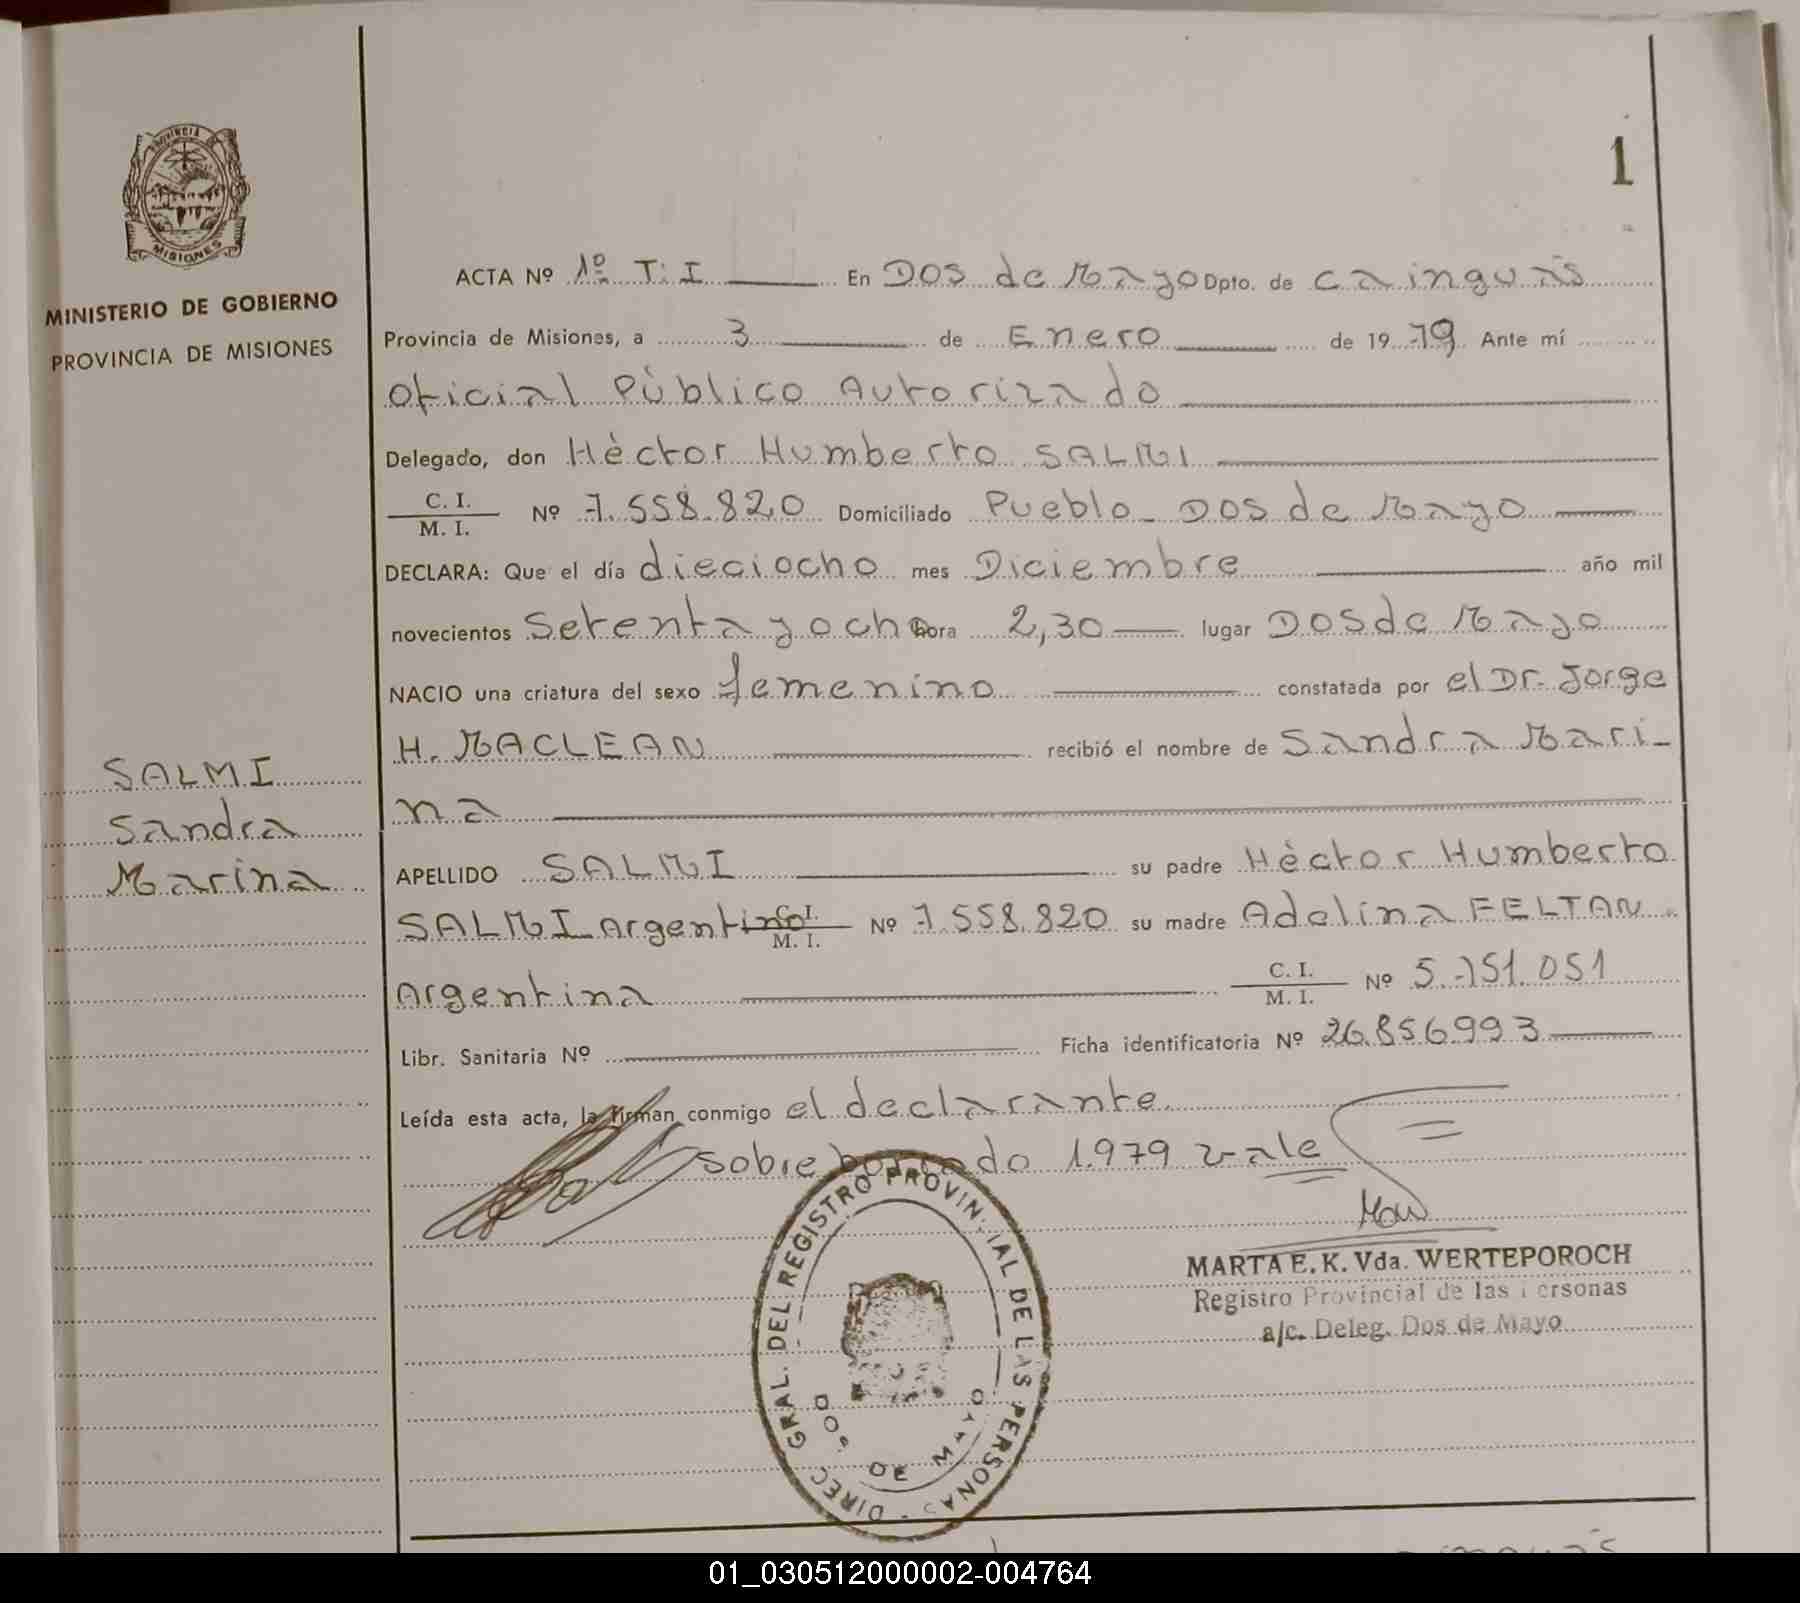 1
PROVINCIA
MISIONES
MINISTERIO DE GOBIERNO
PROVINCIA DE MISIONES
SALMI
Sandra
Marina
ACTA Nº 1º T. I En Dos de Mayo Dpto. de Cainguás
Provincia de Misiones, a 3 de Enero de 19 79 Ante mí
Oficial Público Autorizado
Delegado, don Hèctor Humberto SALMI
C. I.
M. I. Nº 7.558.820 Domiciliado Pueblo Dos de Mayo
DECLARA: Que el día dieciocho mes Diciembre año mil
novecientos Setenta y ocho hora 2,30 lugar Dos de Mayo
NACIO una criatura del sexo femenino constatada por el Dr. Jorge
H. MACLEAN recibió el nombre de Sandra Mari-
na
APELLIDO SALMI su padre Hèctor Humberto
SALMI Argentino C. I. M. I. Nº 7.558.820 su madre Adelina FELTAN
Argentina C. I. M. I. Nº 5.751.051
Libr. Sanitaria Nº Ficha identificatoria Nº 26.856.993
Leída esta acta, la firman conmigo el declarante.
sobre borrado 1.979 vale
MARTA E. K. Vda. WERTEPOROCH
Registro Provincial de las Personas
a/c. Deleg. Dos de Mayo
DIREC. GRAL. DEL REGISTRO PROVINCIAL DE LAS PERSONAS
DOS DE MAYO
01_030512000002-004764